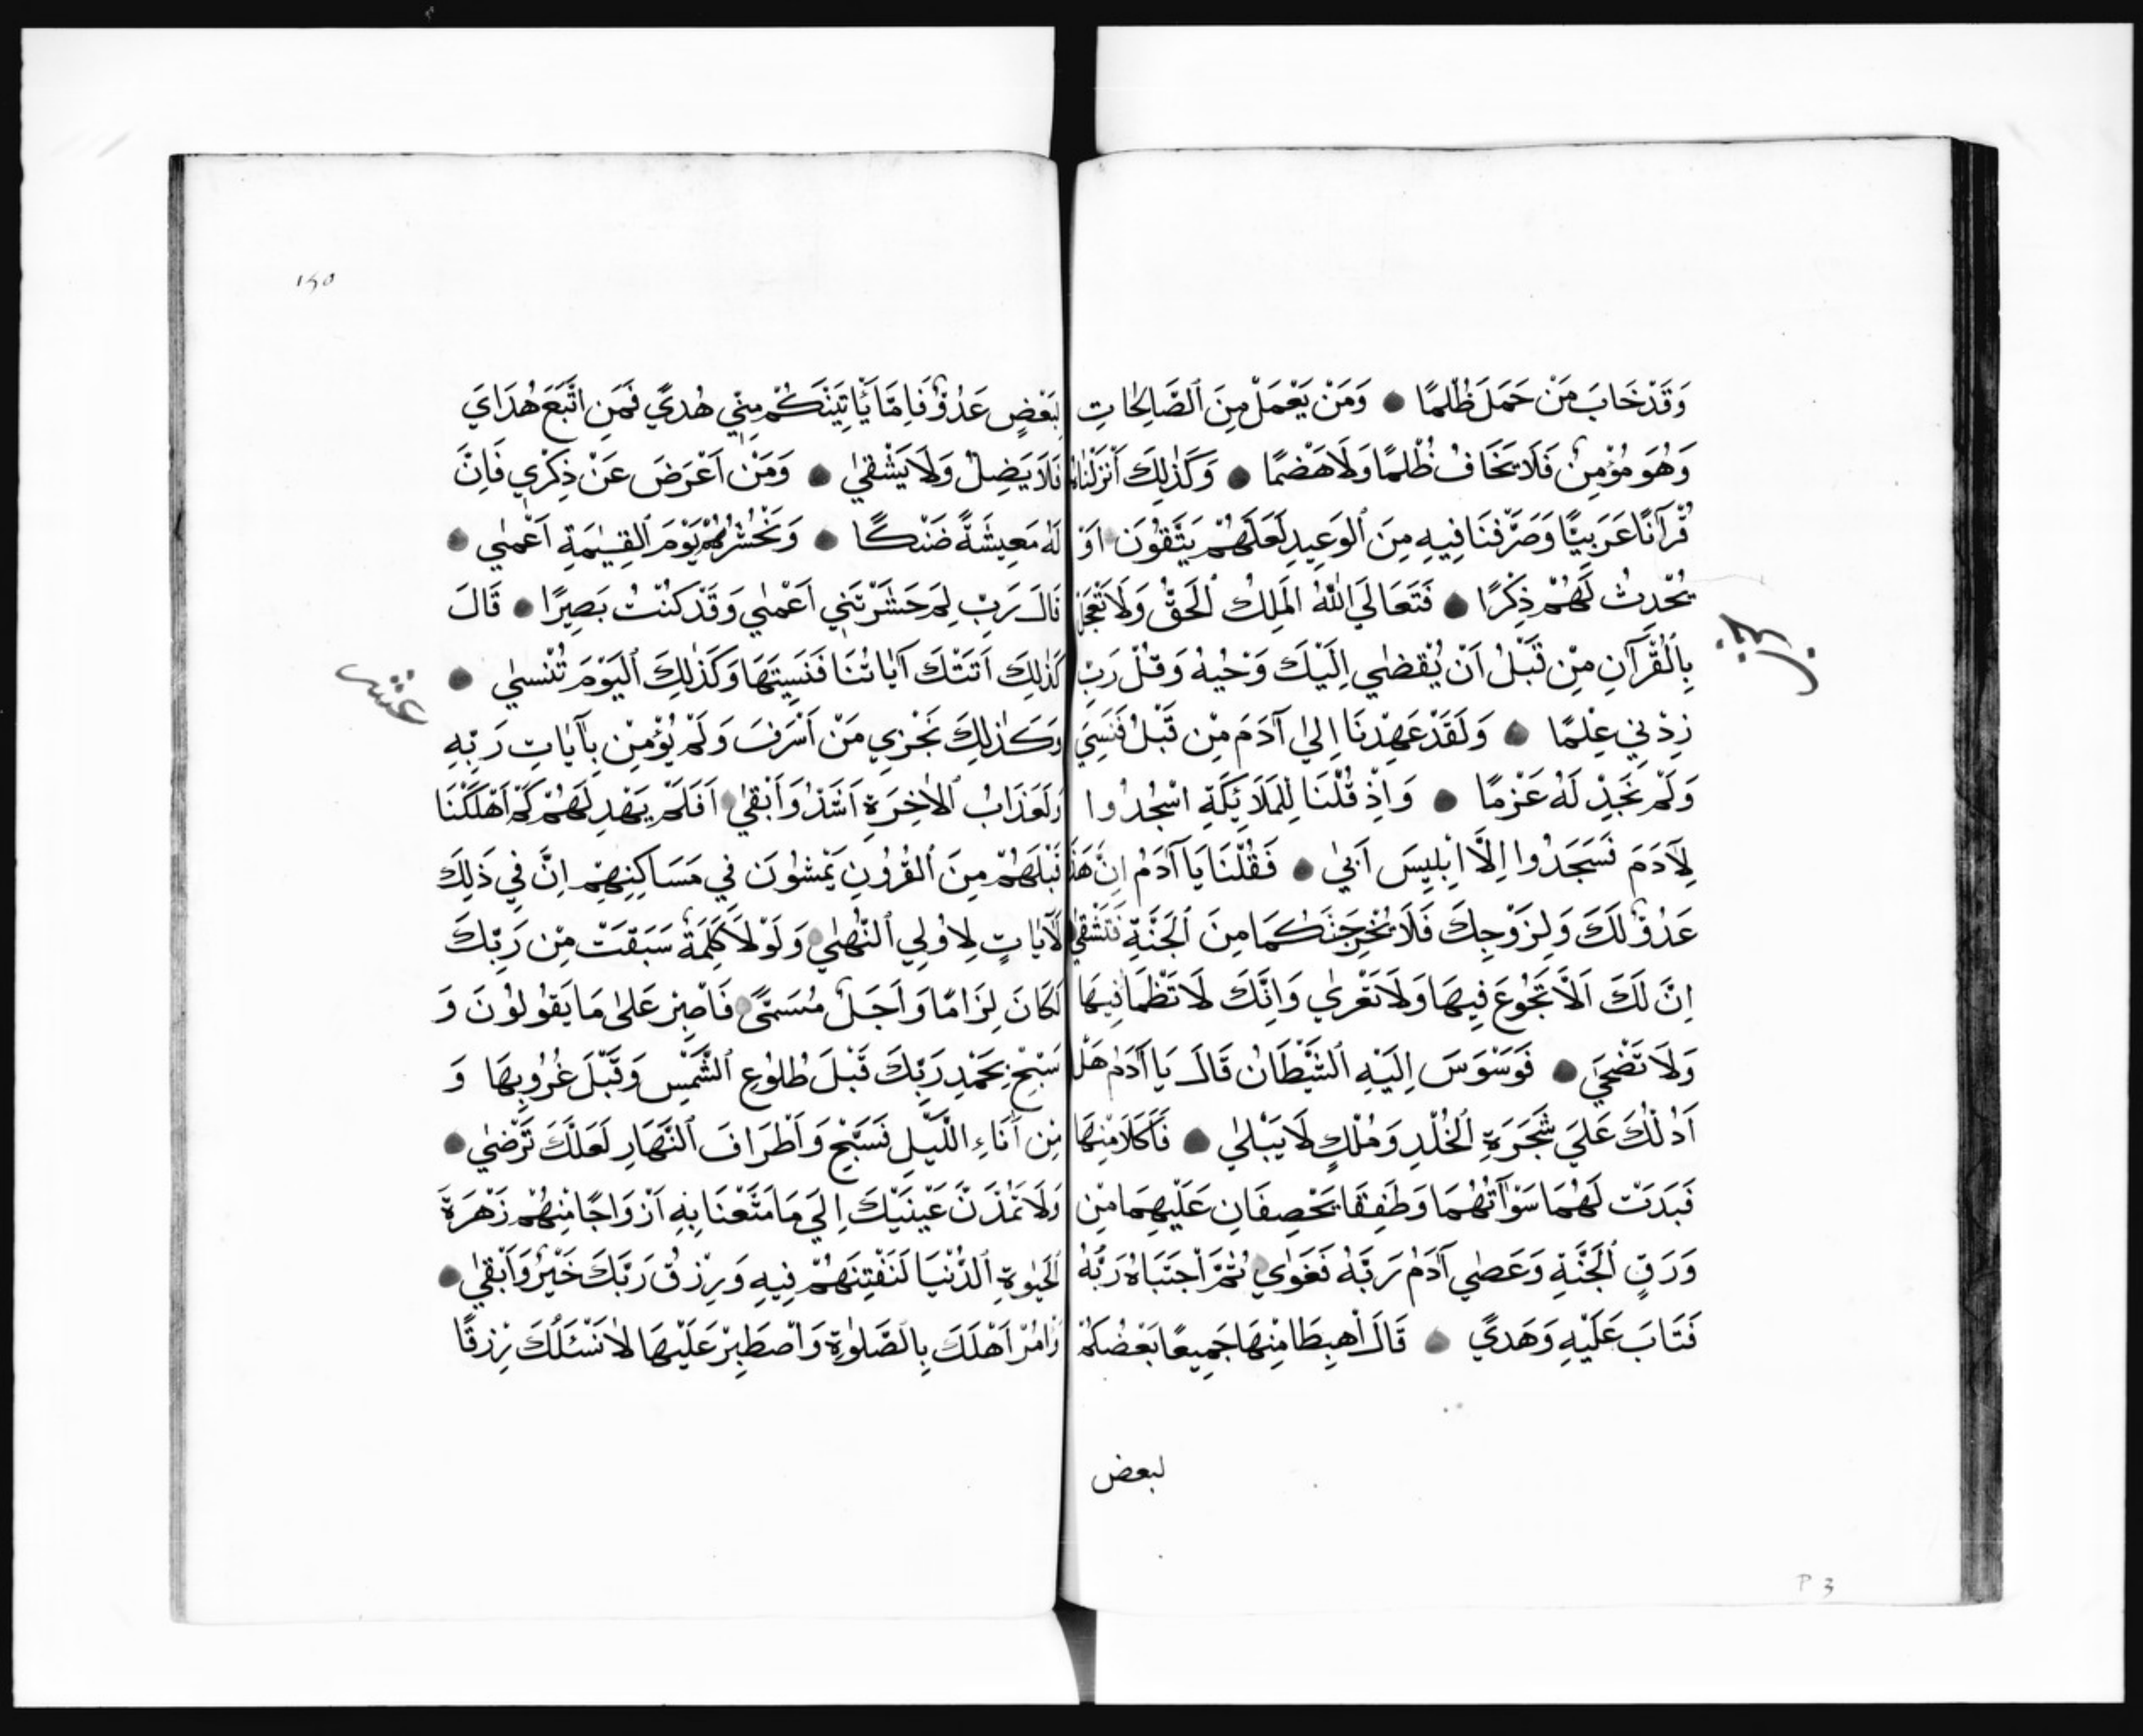 وَقَدْ خَابَ مَنْ حَمَلَ ظُلْمًا وَمَنْ يَعْمَلْ مِنَ ٱلصَّالِحَاتِ
وَهُوَ مُؤْمِنٌ فَلَا يَخَافُ ظُلْمًا وَلَا هَضْمًا وَكَذٰلِكَ أَنْزَلْنَاهُ
قُرْآنًا عَرَبِيًّا وَصَرَّفْنَا فِيهِ مِنَ ٱلْوَعِيدِ لَعَلَّهُمْ يَتَّقُونَ اَوْ
يُحْدِثُ لَهُمْ ذِكْرًا فَتَعَالَى اللّٰهُ الْمَلِكُ ٱلْحَقُّ وَلَا تَعْجَلْ
بِالْقُرْآنِ مِنْ قَبْلُ اَنْ يُقْضٰي اِلَيْكَ وَحْيُهُ وَقُلْ رَبِّ
زِدْنِي عِلْمًا وَلَقَدْ عَهِدْنَا اِلٰي آدَمَ مِنْ قَبْلُ فَنَسِيَ
وَلَمْ نَجِدْ لَهُ عَزْمًا وَاِذْ قُلْنَا لِلْمَلَائِكَةِ اسْجُدُوا
لِآدَمَ فَسَجَدُوا اِلَّا اِبْلِيسَ اَبٰي فَقُلْنَا يَا آدَمُ اِنَّ هَذَا
عَدُوٌّ لَكَ وَلِزَوْجِكَ فَلَا يُخْرِجَنَّكُمَا مِنَ ٱلْجَنَّةِ فَتَشْقٰي
اِنَّ لَكَ اَلَّا تَجُوعَ فِيهَا وَلَا تَعْرٰي وَاِنَّكَ لَا تَظْمَا فِيهَا
وَلَا تَضْحَي فَوَسْوَسَ اِلَيْهِ ٱلشَّيْطَانُ قَالَ يَا آدَمُ هَلْ
اَدُلُّكَ عَلَي شَجَرَةِ ٱلْخُلْدِ وَمُلْكٍ لَا يَبْلٰي فَأَكَلَا مِنْهَا
فَبَدَتْ لَهُمَا سَوْآتُهُمَا وَطَفِقَا يَخْصِفَانِ عَلَيْهِمَا مِنْ
وَرَقِ ٱلْجَنَّةِ وَعَصٰي آدَمُ رَبَّهُ فَغَوٰي ثُمَّ اجْتَبَاهُ رَبُّهُ
فَتَابَ عَلَيْهِ وَهَدَي قَالَ اهْبِطَا مِنْهَا جَمِيعًا بَعْضُكُمْ
لبعض
P 3
١٤٥
لِبَعْضٍ عَدُوٌّ فَاِمَّا يَأْتِيَنَّكُمْ مِنِّي هُدًي فَمَنِ اتَّبَعَ هُدَايَ
فَلَا يَضِلُّ وَلَا يَشْقٰي وَمَنْ اَعْرَضَ عَنْ ذِكْرِي فَاِنَّ
لَهُ مَعِيشَةً ضَنْكًا وَنَحْشُرُهُ يَوْمَ ٱلْقِيٰمَةِ اَعْمٰي
قَالَ رَبِّ لِمَ حَشَرْتَنِي اَعْمٰي وَقَدْ كُنْتُ بَصِيرًا قَالَ
كَذٰلِكَ اَتَتْكَ آيَاتُنَا فَنَسِيتَهَا وَكَذٰلِكَ ٱلْيَوْمَ تُنْسٰي
عشر
وَكَذٰلِكَ نَجْزِي مَنْ اَسْرَفَ وَلَمْ يُؤْمِنْ بِآيَاتِ رَبِّهِ
وَلَعَذَابُ ٱلْاٰخِرَةِ اَشَدُّ وَاَبْقٰي اَفَلَمْ يَهْدِ لَهُمْ كَمْ اَهْلَكْنَا
قَبْلَهُمْ مِنَ ٱلْقُرُونِ يَمْشُونَ فِي مَسَاكِنِهِمْ اِنَّ فِي ذٰلِكَ
لَآيَاتٍ لِاُولِي ٱلنُّهٰي وَلَوْلَا كَلِمَةٌ سَبَقَتْ مِنْ رَبِّكَ
لَكَانَ لِزَامًا وَاَجَلٌ مُسَمًّي فَاصْبِرْ عَلٰي مَا يَقُولُونَ وَ
سَبِّحْ بِحَمْدِ رَبِّكَ قَبْلَ طُلُوعِ ٱلشَّمْسِ وَقَبْلَ غُرُوبِهَا وَ
مِنْ آنَاءِ اللَّيْلِ فَسَبِّحْ وَاَطْرَافَ ٱلنَّهَارِ لَعَلَّكَ تَرْضٰي
وَلَا تَمُدَّنَّ عَيْنَيْكَ اِلَي مَا مَتَّعْنَا بِهِ اَزْوَاجًا مِنْهُمْ زَهْرَةَ
ٱلْحَيٰوةِ ٱلدُّنْيَا لِنَفْتِنَهُمْ فِيهِ وَرِزْقُ رَبِّكَ خَيْرٌ وَاَبْقٰي
وَاْمُرْ اَهْلَكَ بِالصَّلٰوةِ وَاصْطَبِرْ عَلَيْهَا لَا نَسْئَلُكَ رِزْقًا